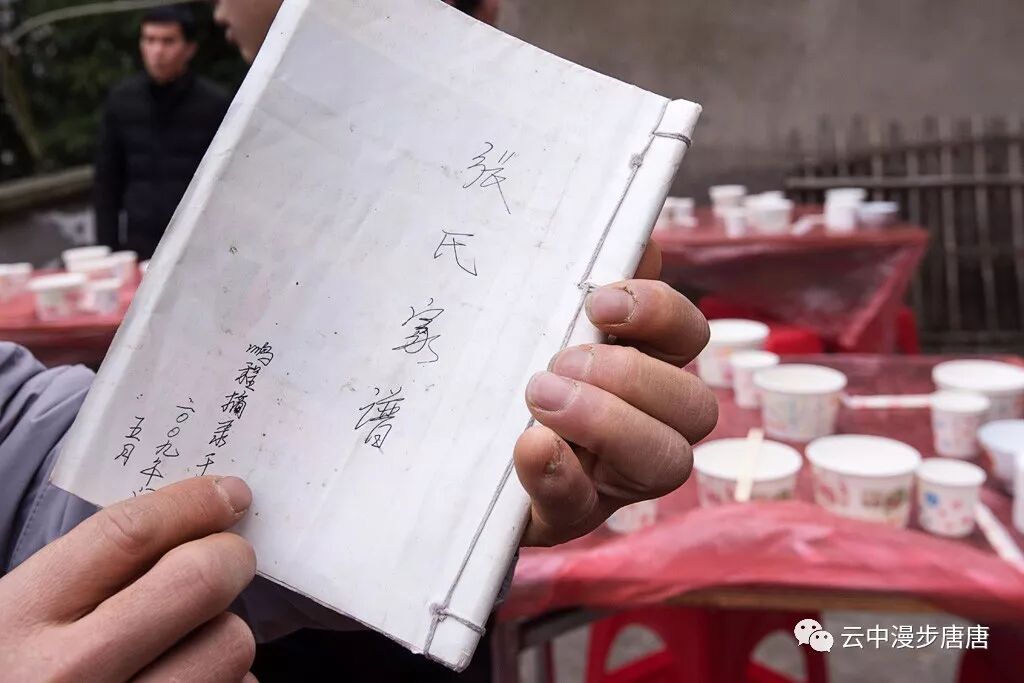 张氏家谱
鹏程摘录于
二〇〇九年
五月
云中漫步唐唐